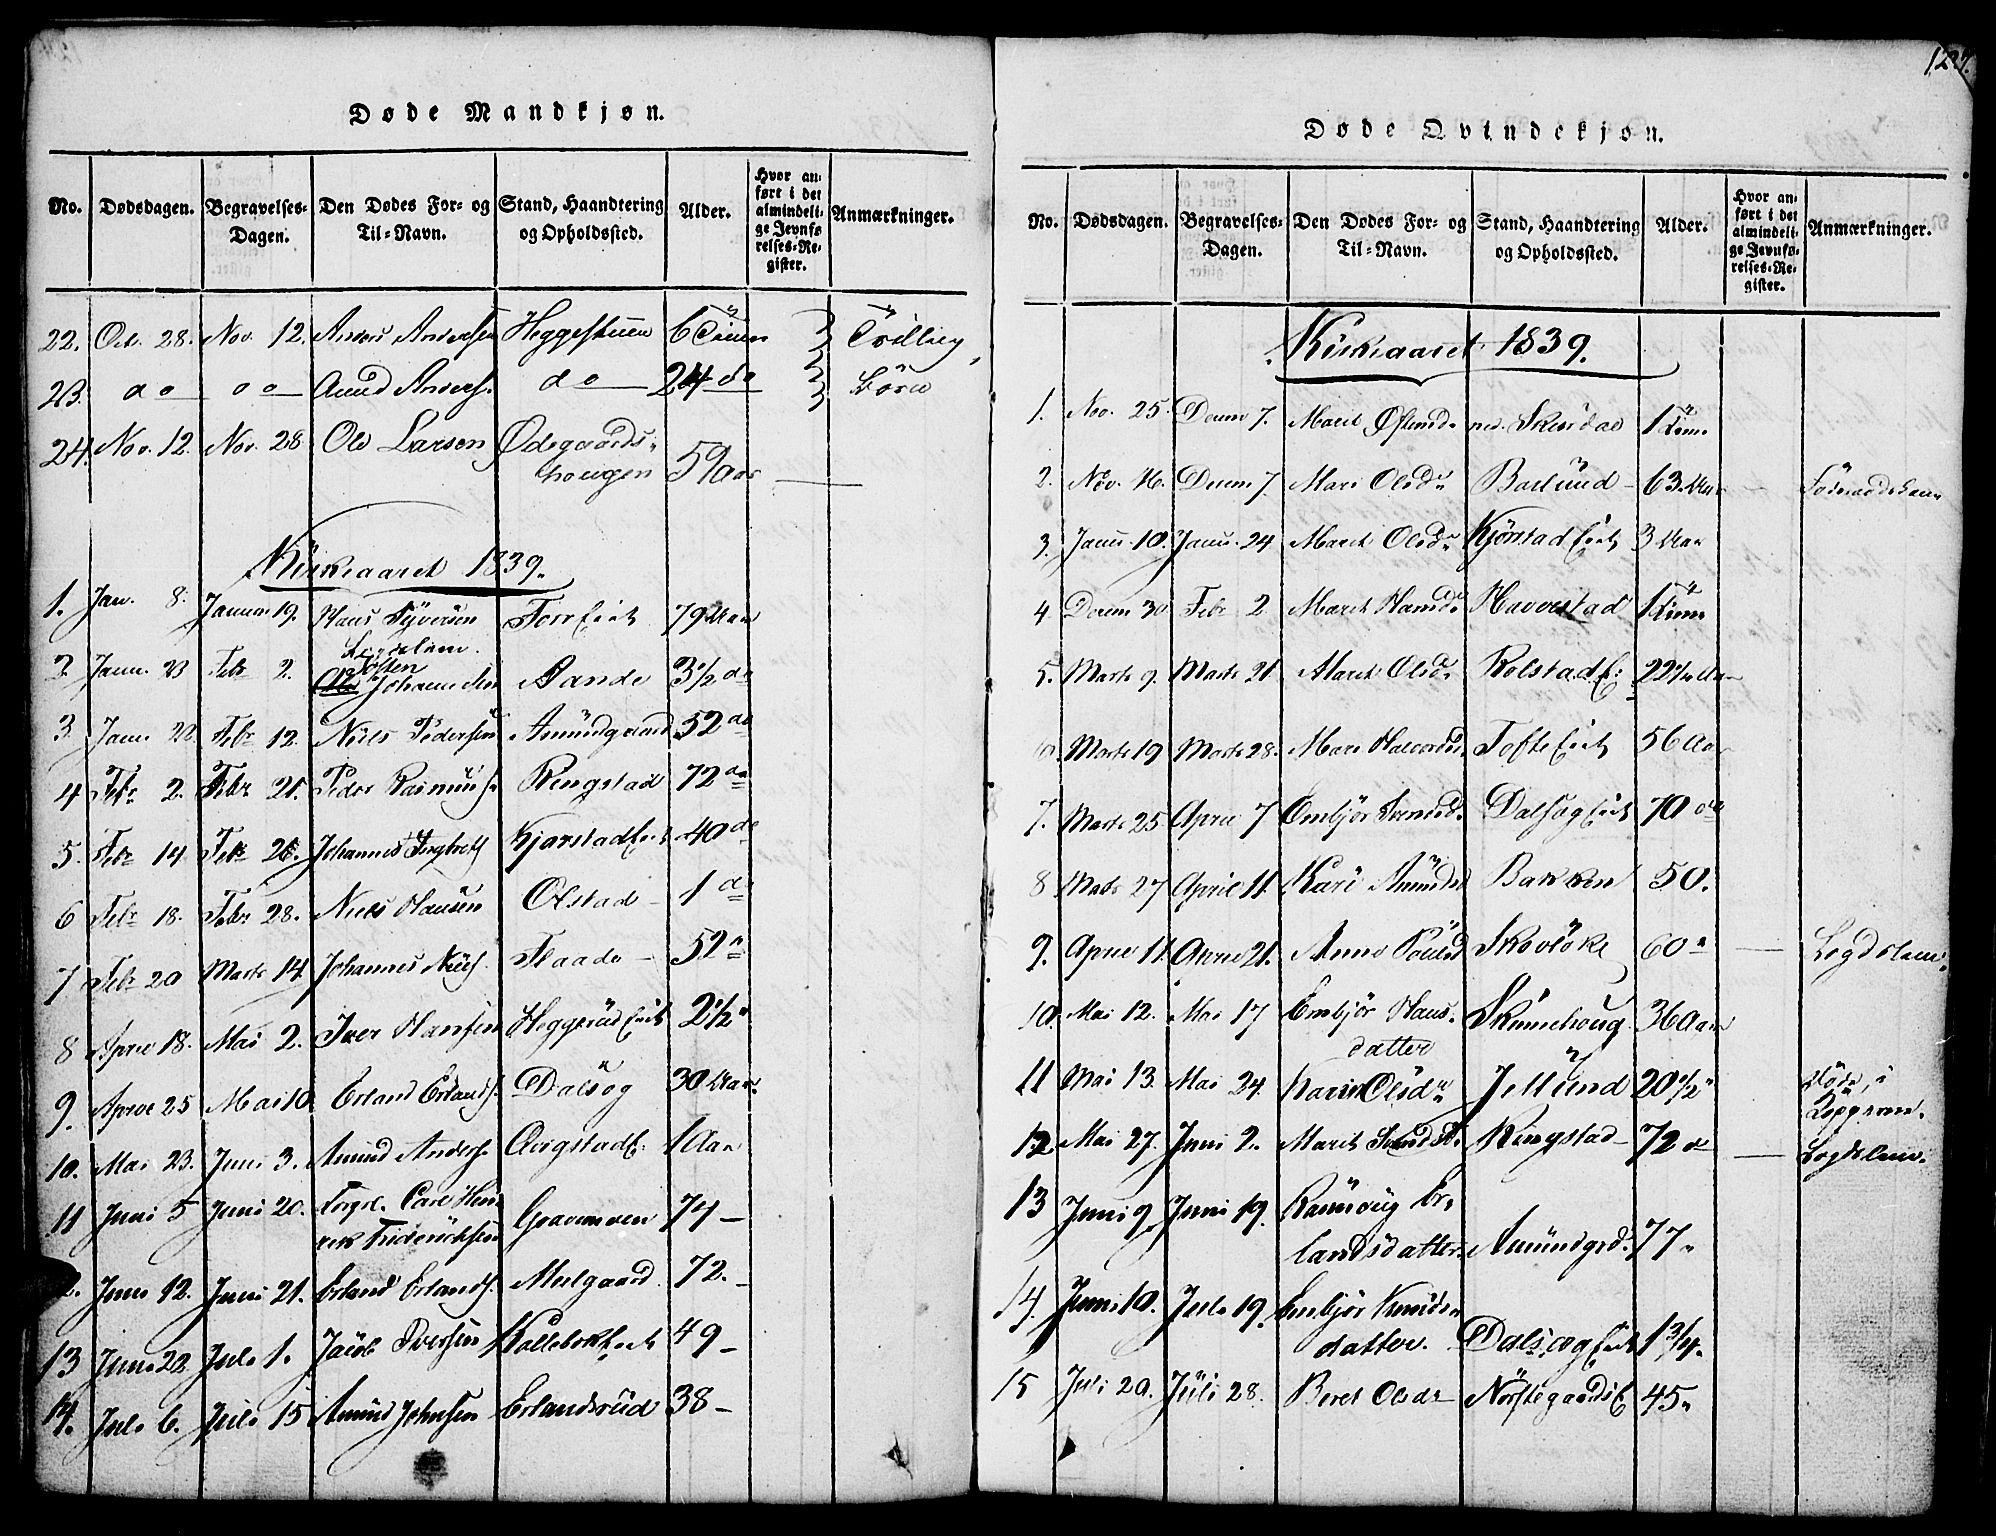 Døde Mandkjøn.
No. Dødsdagen. Begravelses-Dagen. Den Dødes For- og Til-Navn. Stand, Haandtering og Opholdssted. Alder. Hvor anført i det almindelige Jevnførelses-Register. Anmærkninger.
22. Oct. 28. Nov. 12. Anders Andersen Heggestuen 6 Timer Tvilling
23. do do Amund Anders. do 24 do Børn
24. Nov. 12. Nov. 28 Ole Larsen Ødegaards-
hougen 59 Aar
Kirkeaaret 1839.
1. Jan. 8. Januar 19. Hans Syversen Forr Eiet 79 Aar
Legdslem.
2. Janu. 23 Febr 2. Johannesen Sande 3 1/2 do
3 Janu. 22. Febr 12. Niels Pedersen Amundgaard 52 do
4 Febr 2. Febr 21. Peder Rasmus. Ringstad 72 do
5. Febr 14 Febr 26. Johannes Ingbrets. Kjørstad Eiet 40 do
6 Febr 18. Febr 28. Niels Hansen Olstad 1 do
7 Febr 20 Marts 14. Johannes Niels. Flaade 52
8 April 18. Mai 2. Iver Hansen Heggerud Eiet 2 1/2
9. April 25 Mai 10. Erland Erlands. Dalsøg 30 Aar
10. Mai 23. Juni 3. Amund Anders. Qvigstad E. 1 Aar
11 Juni 5 Juni 20. Forgl. Carl Hen-
rik Friderichsen Graveneen 74
12. Juni 12. Juni 21. Erland Erlands. Melgaard 72.
13 Juni 22. Juli 1. Jacob Iversen Kollebækk Eiet 49
14. Juli 6. Juli 15 Amund Johnsen Erlandsrud 38
122.
Døde Qvindekjøn.
No. Dødsdagen. Begravelses-Dagen. Den Dødes For- og Til-Navn. Stand, Haandtering og Opholdssted. Alder. Hvor anført i det almindelige Jevnførelses-Register. Anmærkninger.
Kirkeaaret 1839.
1. Nov. 25. Decem 7. Marit Østensd. ned. Skurdal 1 Time
2. Nov. 16. Decem 7. Mari Olsdr Baslund 63 Aar Føderaadskone
3. Janu. 10. Janu. 24 Marit Olsdr Kjørstad Eiet 3 Aar
4 Decem 30 Febr 2 Marit Hansdr Haverstad 1 Time
5. Marts 9. Marts 21. Marit Olsdr Rolstad E. 22 1/2 Aar
6. Marts 19 Marts 28. Mari Halvordsd. Tofte Eiet 56 Aar
7. Marts 25 April 7 Embjør Svensd. Dalsøg Eiet 70 do
8 Marts 27 April 11. Kari Amunds Bakken 50.
9. April 11. April 21. Anne Poulsd Skovløke 60 Legdslem.
10. Mai 12. Mai 17 Embjør Hans-
datter Skimehoug 36 Aar
11 Mai 13. Mai 24. Karin Olsdr Jetlund 20 1/2 Døde i
12 Mai 27. Juni 2. Marit Ringstad 72 Legdslem.
13 Juni 9. Juni 19. Rannveig Er-
landsdatter. Amundgrd. 77
14. Juni 10. Juli 19. Embjør Knuds-
datter. Dalsøg Eiet 1 3/4.
15 Juli 20. Juli 28. Beret Olsdr Nørstegaards E 45